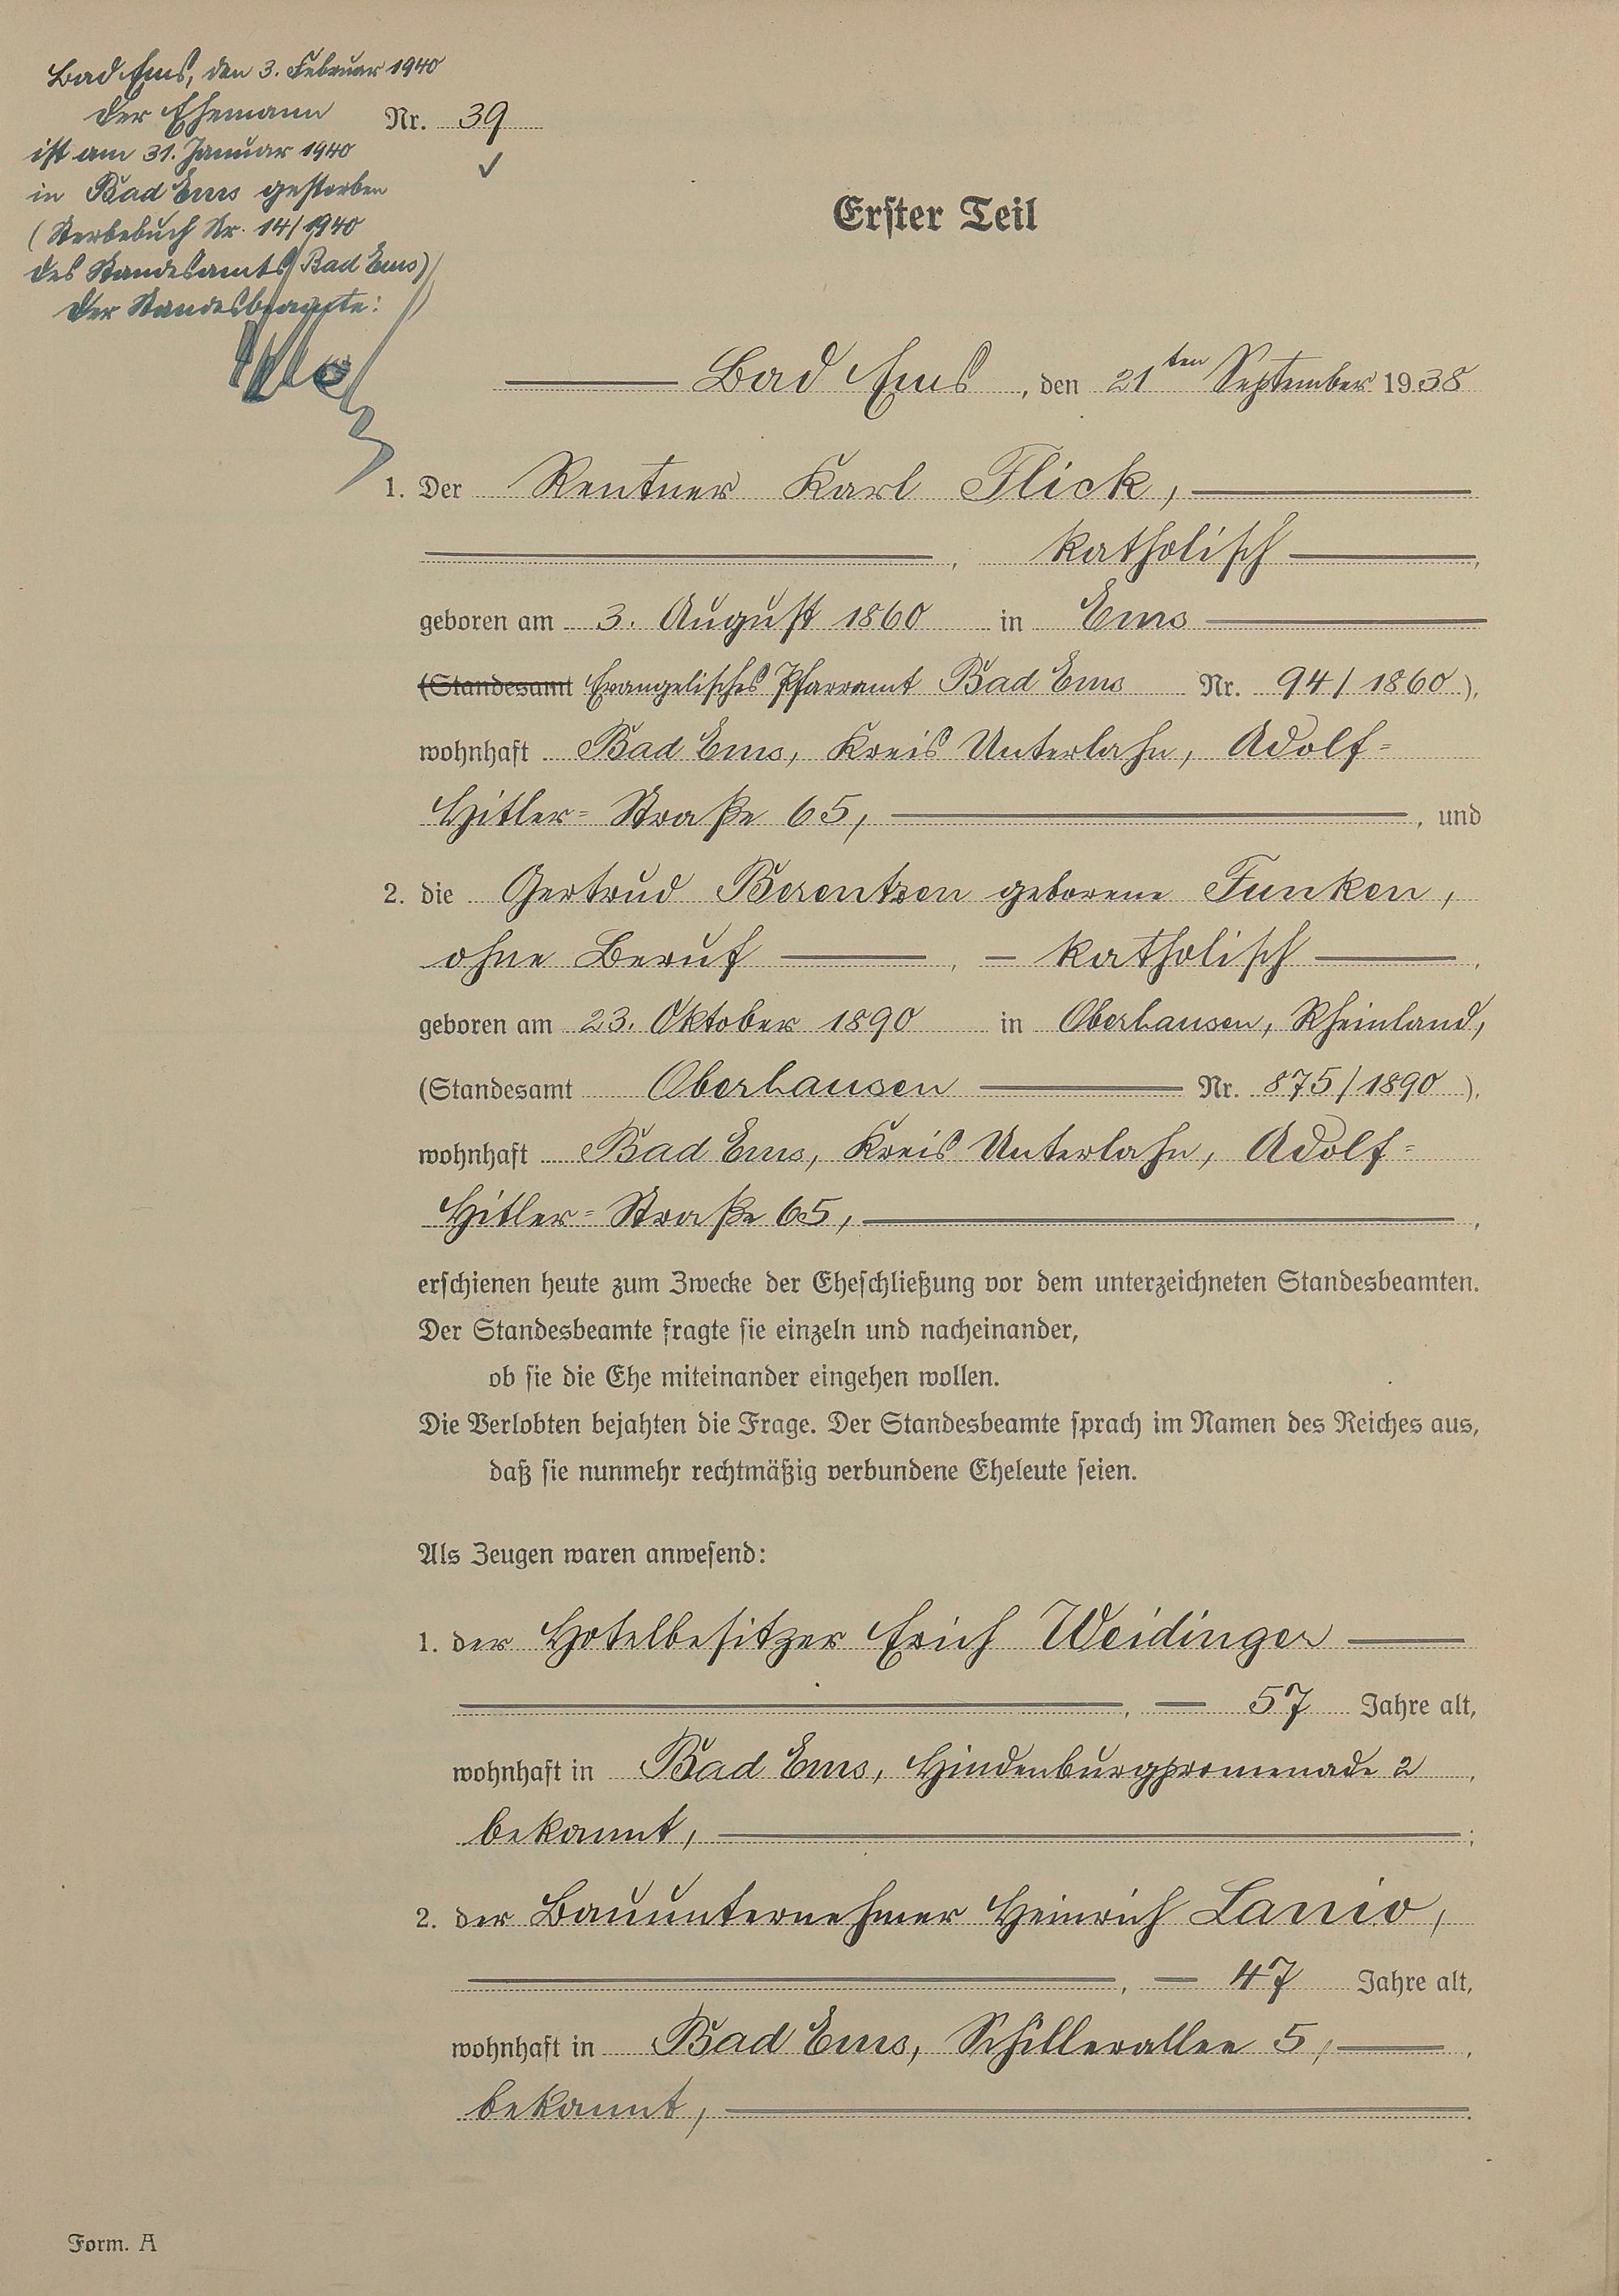 Bad Ems, den 3. Februar 1940
Der Ehemann
ist am 31. Januar 1940
in Bad Ems gestorben
(Sterbebuch Nr. 14/1940
des Standesamts Bad Ems)
Der Standesbeamte:
Nr. 39
Erster Teil
Bad Ems, den 21ten September 1938
1. Der Rentner Karl Flick,
, katholisch ,
geboren am 3. August 1860 in Ems
(Standesamt Evangelisches Pfarramt Bad Ems Nr. 94/1860),
wohnhaft Bad Ems, Kreis Unterlahn, Adolf-
Hitler-Straße 65, , und
2. die Gertrud Berentzen geborene Funken,
ohne Beruf , – katholisch ,
geboren am 23. Oktober 1890 in Oberhausen, Rheinland,
(Standesamt Oberhausen Nr. 875/1890),
wohnhaft Bad Ems, Kreis Unterlahn, Adolf-
Hitler-Straße 65, ,
erschienen heute zum Zwecke der Eheschließung vor dem unterzeichneten Standesbeamten.
Der Standesbeamte fragte sie einzeln und nacheinander,
ob sie die Ehe miteinander eingehen wollen.
Die Verlobten bejahten die Frage. Der Standesbeamte sprach im Namen des Reiches aus,
daß sie nunmehr rechtmäßig verbundene Eheleute seien.
Als Zeugen waren anwesend:
1. der Hotelbesitzer Erich Weidinger
, – 57 Jahre alt,
wohnhaft in Bad Ems, Hindenburgpromenade 2 ,
bekannt, ;
2. der Bauunternehmer Heinrich Lanio,
, – 47 Jahre alt,
wohnhaft in Bad Ems, Schillerallee 5, ,
bekannt, .
Form. A